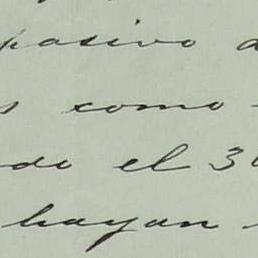 pasivo
como
do el 30
hayan